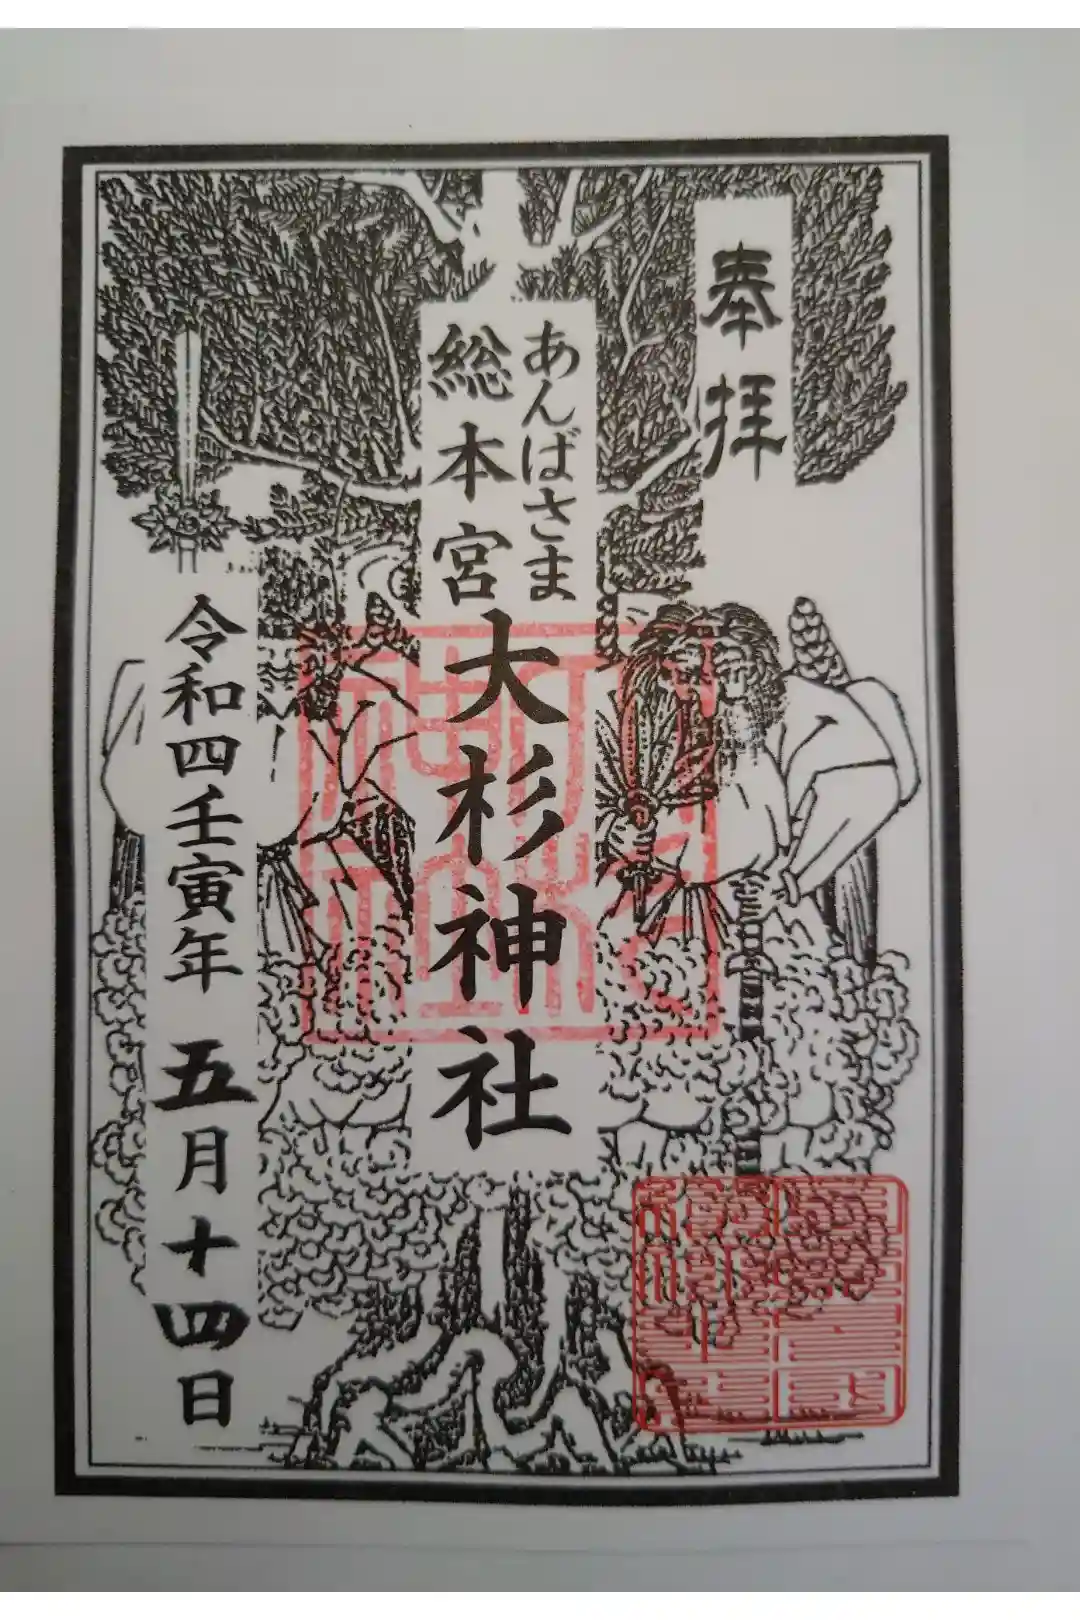 奉拝
あんばさま
総本宮
大杉神社
令和四壬寅年 五月十四日